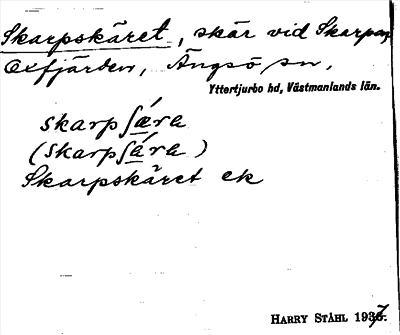 Skarpskäret, skär vid Skarpan,
Oxfjärden, Ängsö sn,
Yttertjurbo hd, Västmanlands län.
skarpʃǽra
(skarpʃára)
Skarpskäret ek
HARRY STÅHL 1937.